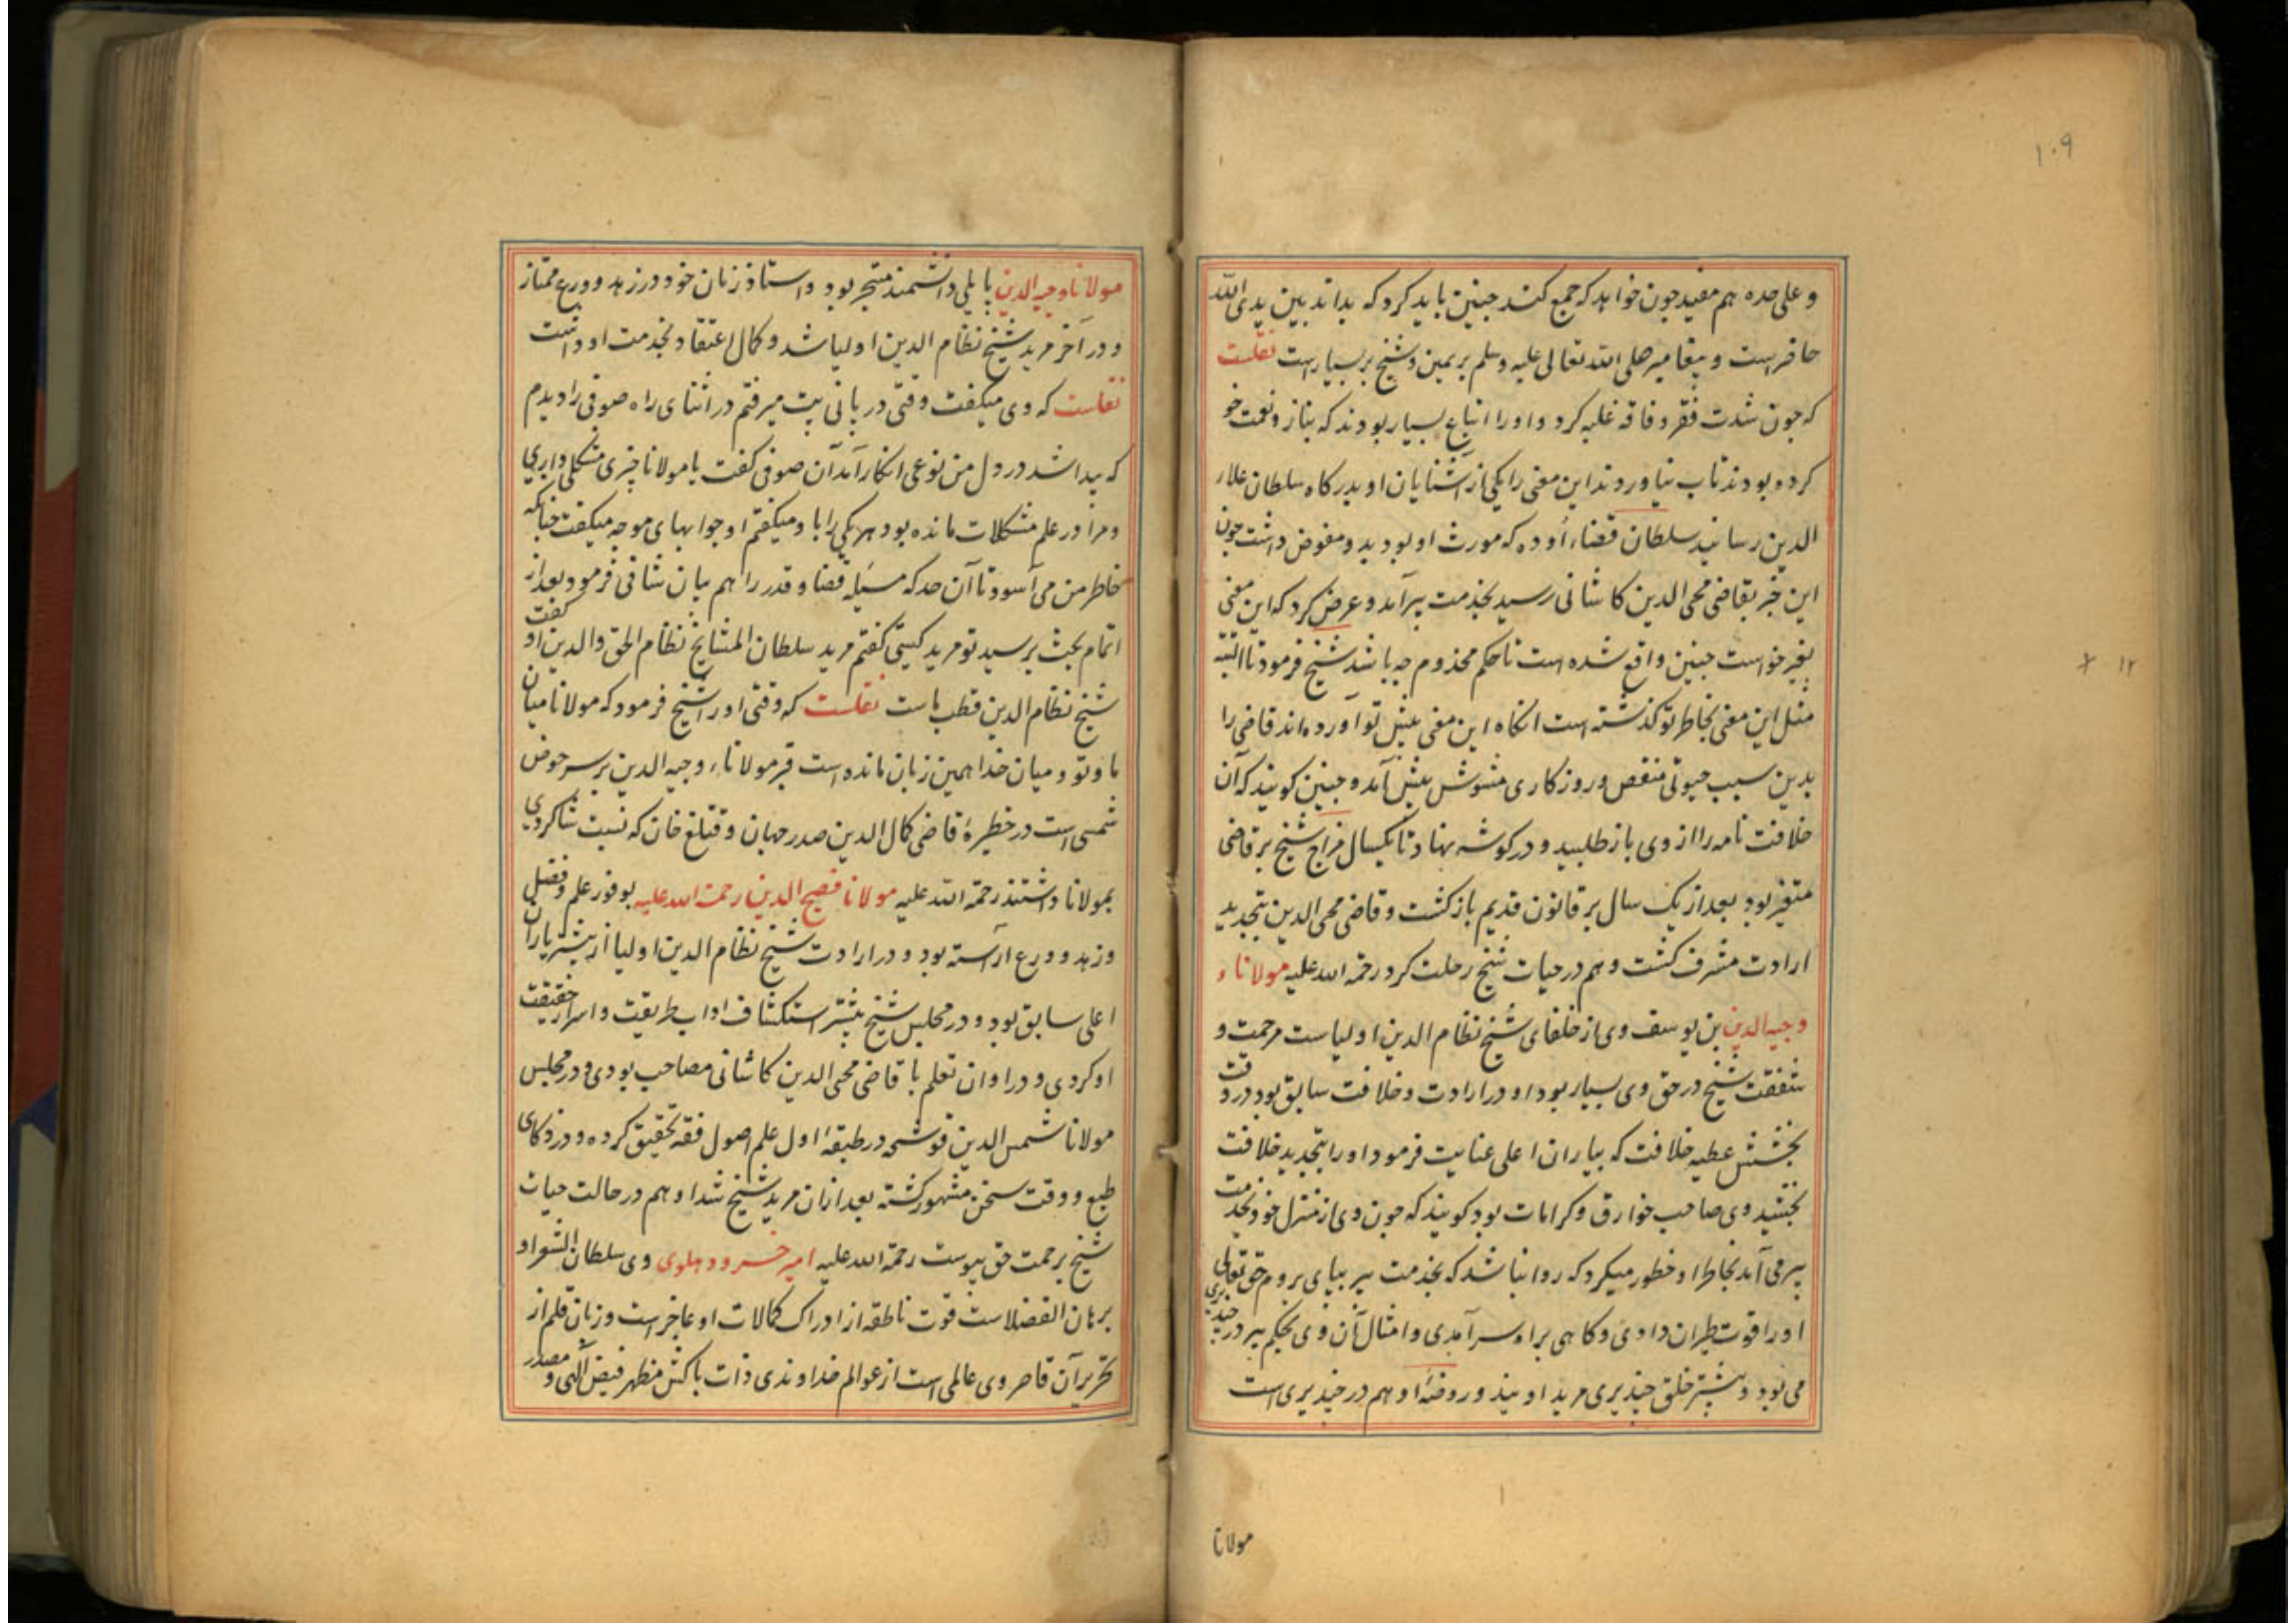 ۱۰۹
و علی حده هم مفید چون خواهد که جمع کند چنین باید کرد که بداند بین یدی الله
حاضر است و پیغامبر صلی الله تعالی علیه وسلم بر یمین و شیخ بر یسار است نقلست
که چون شدت فقر و فاقه غلبه کرد و اورا اتباع بسیار بودند که بناز و نعمت خو
کرده بودند تاب نیاوردند این معنی را یکی از آشنایان او بدرکاه سلطان علاء
الدین رسانید سلطان قضاء اوده که مورث او بود بدو مفوض داشت چون
این خبر بقاضی محی الدین کاشانی رسید بخدمت پیر آمد و عرض کرد که این معنی
بغیر خواست چنین واقع شده است تا حکم مخدوم چه باشد شیخ فرمود تا البته
مثل این معنی بخاطر تو کذشته است انکاه این معنی پیش تو آورده اند قاضی را
بدین سبب حیوتی منقص و روزکاری مشوش پیش آمد و چنین کویند که آن
خلافت نامه را از وی باز طلبید و در کوشه نهاد تا یکسال مزاج شیخ بر قاضی
متغیر بود بعد از یک سال بر قانون قدیم باز کشت و قاضی محی الدین بتجدید
ارادت مشرف کشت و هم در حیات شیخ رحلت کرد رحمة الله علیه مولاناء
وجیه الدین بن یوسف وی از خلفای شیخ نظام الدین اولیاست مرحمت و
شفقت شیخ در حق وی بسیار بود او در ارادت و خلافت سابق بود در وقت
بخشش عطیه خلافت که بیاران اعلی عنایت فرمود اورا بتجدید خلافت
بخشید وی صاحب خوارق و کرامات بود کویند که چون وی از منزل خود بخدمت
پیر می آمد بخاطر او خطور میکرد که روا نباشد که بخدمت پیر بپای بروم حق تعالی
اورا قوت طیران دادی و کاهی براه سر آمدی و امثال آن وی بحکم پیر در چندیری
می بود و بیشتر خلق چندیری مرید اویند و روضهٔ او هم در چندیری است
مولانا
مولانا وجیه الدین پایلی دانشمند متبحر بود و استاد زمان خود در زهد و ورع ممتاز
و در آخر مرید شیخ نظام الدین اولیا شد و کمال اعتقاد بخدمت او داشت
نقلست که وی میکفت وقتی در پانی پت میرفتم در اثنای راه صوفی را دیدم
که پیدا شد در دل من نوعی انکار آمد آن صوفی کفت یا مولانا چیزی مشکلی داری
و مرا در علم مشکلات مانده بود هر یکی را با و میکفتم او جوابهای موجه میکفت چنانکه
خاطر من می آسود تا آن حد که مسئله قضا و قدر را هم بیان شافی فرمود بعد از
اتمام بحث پرسید تو مرید کیستی کفتم مرید سلطان المشایخ نظام الحق والدین او کفت
شیخ نظام الدین قطب ماست نقلست که وقتی اورا شیخ فرمود که مولانا میان
ما و تو و میان خدا همین زبان مانده است قبر مولاناء وجیه الدین بر سر حوض
شمسی است در خطیرهٔ قاضی کمال الدین صدر جهان و قتلغ خان که نسبت شاکردی
بمولانا داشتند رحمة الله علیه مولانا فصیح الدین رحمت الله علیه بوفور علم و فضل
و زهد و ورع آراسته بود و در ارادت شیخ نظام الدین اولیا از بیشتر یاران
اعلی سابق بود و در مجلس شیخ بیشتر استکشاف اداب طریقت و اسرار حقیقت
او کردی و در اوان تعلم با قاضی محی الدین کاشانی مصاحب بودی و در مجلس
مولانا شمس الدین قوشجه در طبقهٔ اول علم اصول فقه تحقیق کرده و در ذکای
طبع و وقت سخن مشهور کشته بعد از آن مرید شیخ شد او هم در حالت حیات
شیخ برحمت حق پیوست رحمة الله علیه امیر خسرو دهلوی وی سلطان الشعرا و
برهان الفضلاست قوت ناطقه از ادراک کمالات او عاجز است و زبان قلم از
تحریر آن قاصر وی عالمی است از عوالم خداوندی ذات پاکش مظهر فیض الهی و مصدر